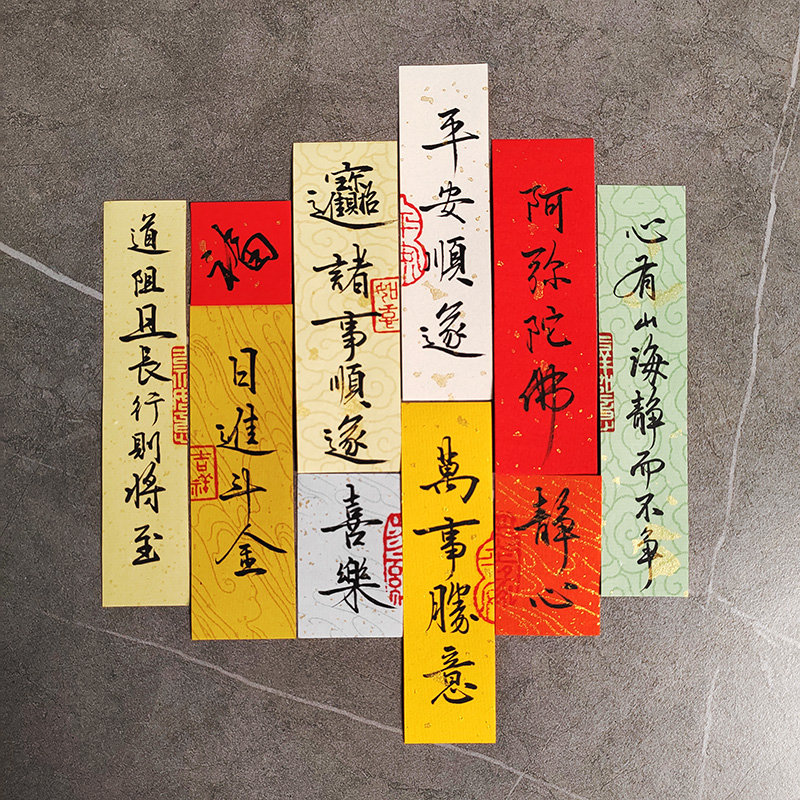 道阻且長行則将至
福
日進斗金
吉祥
招財進寶諸事順遂
如意
喜樂
平安順遂
萬事勝意
阿弥陀佛
静心
心有山海静而不争